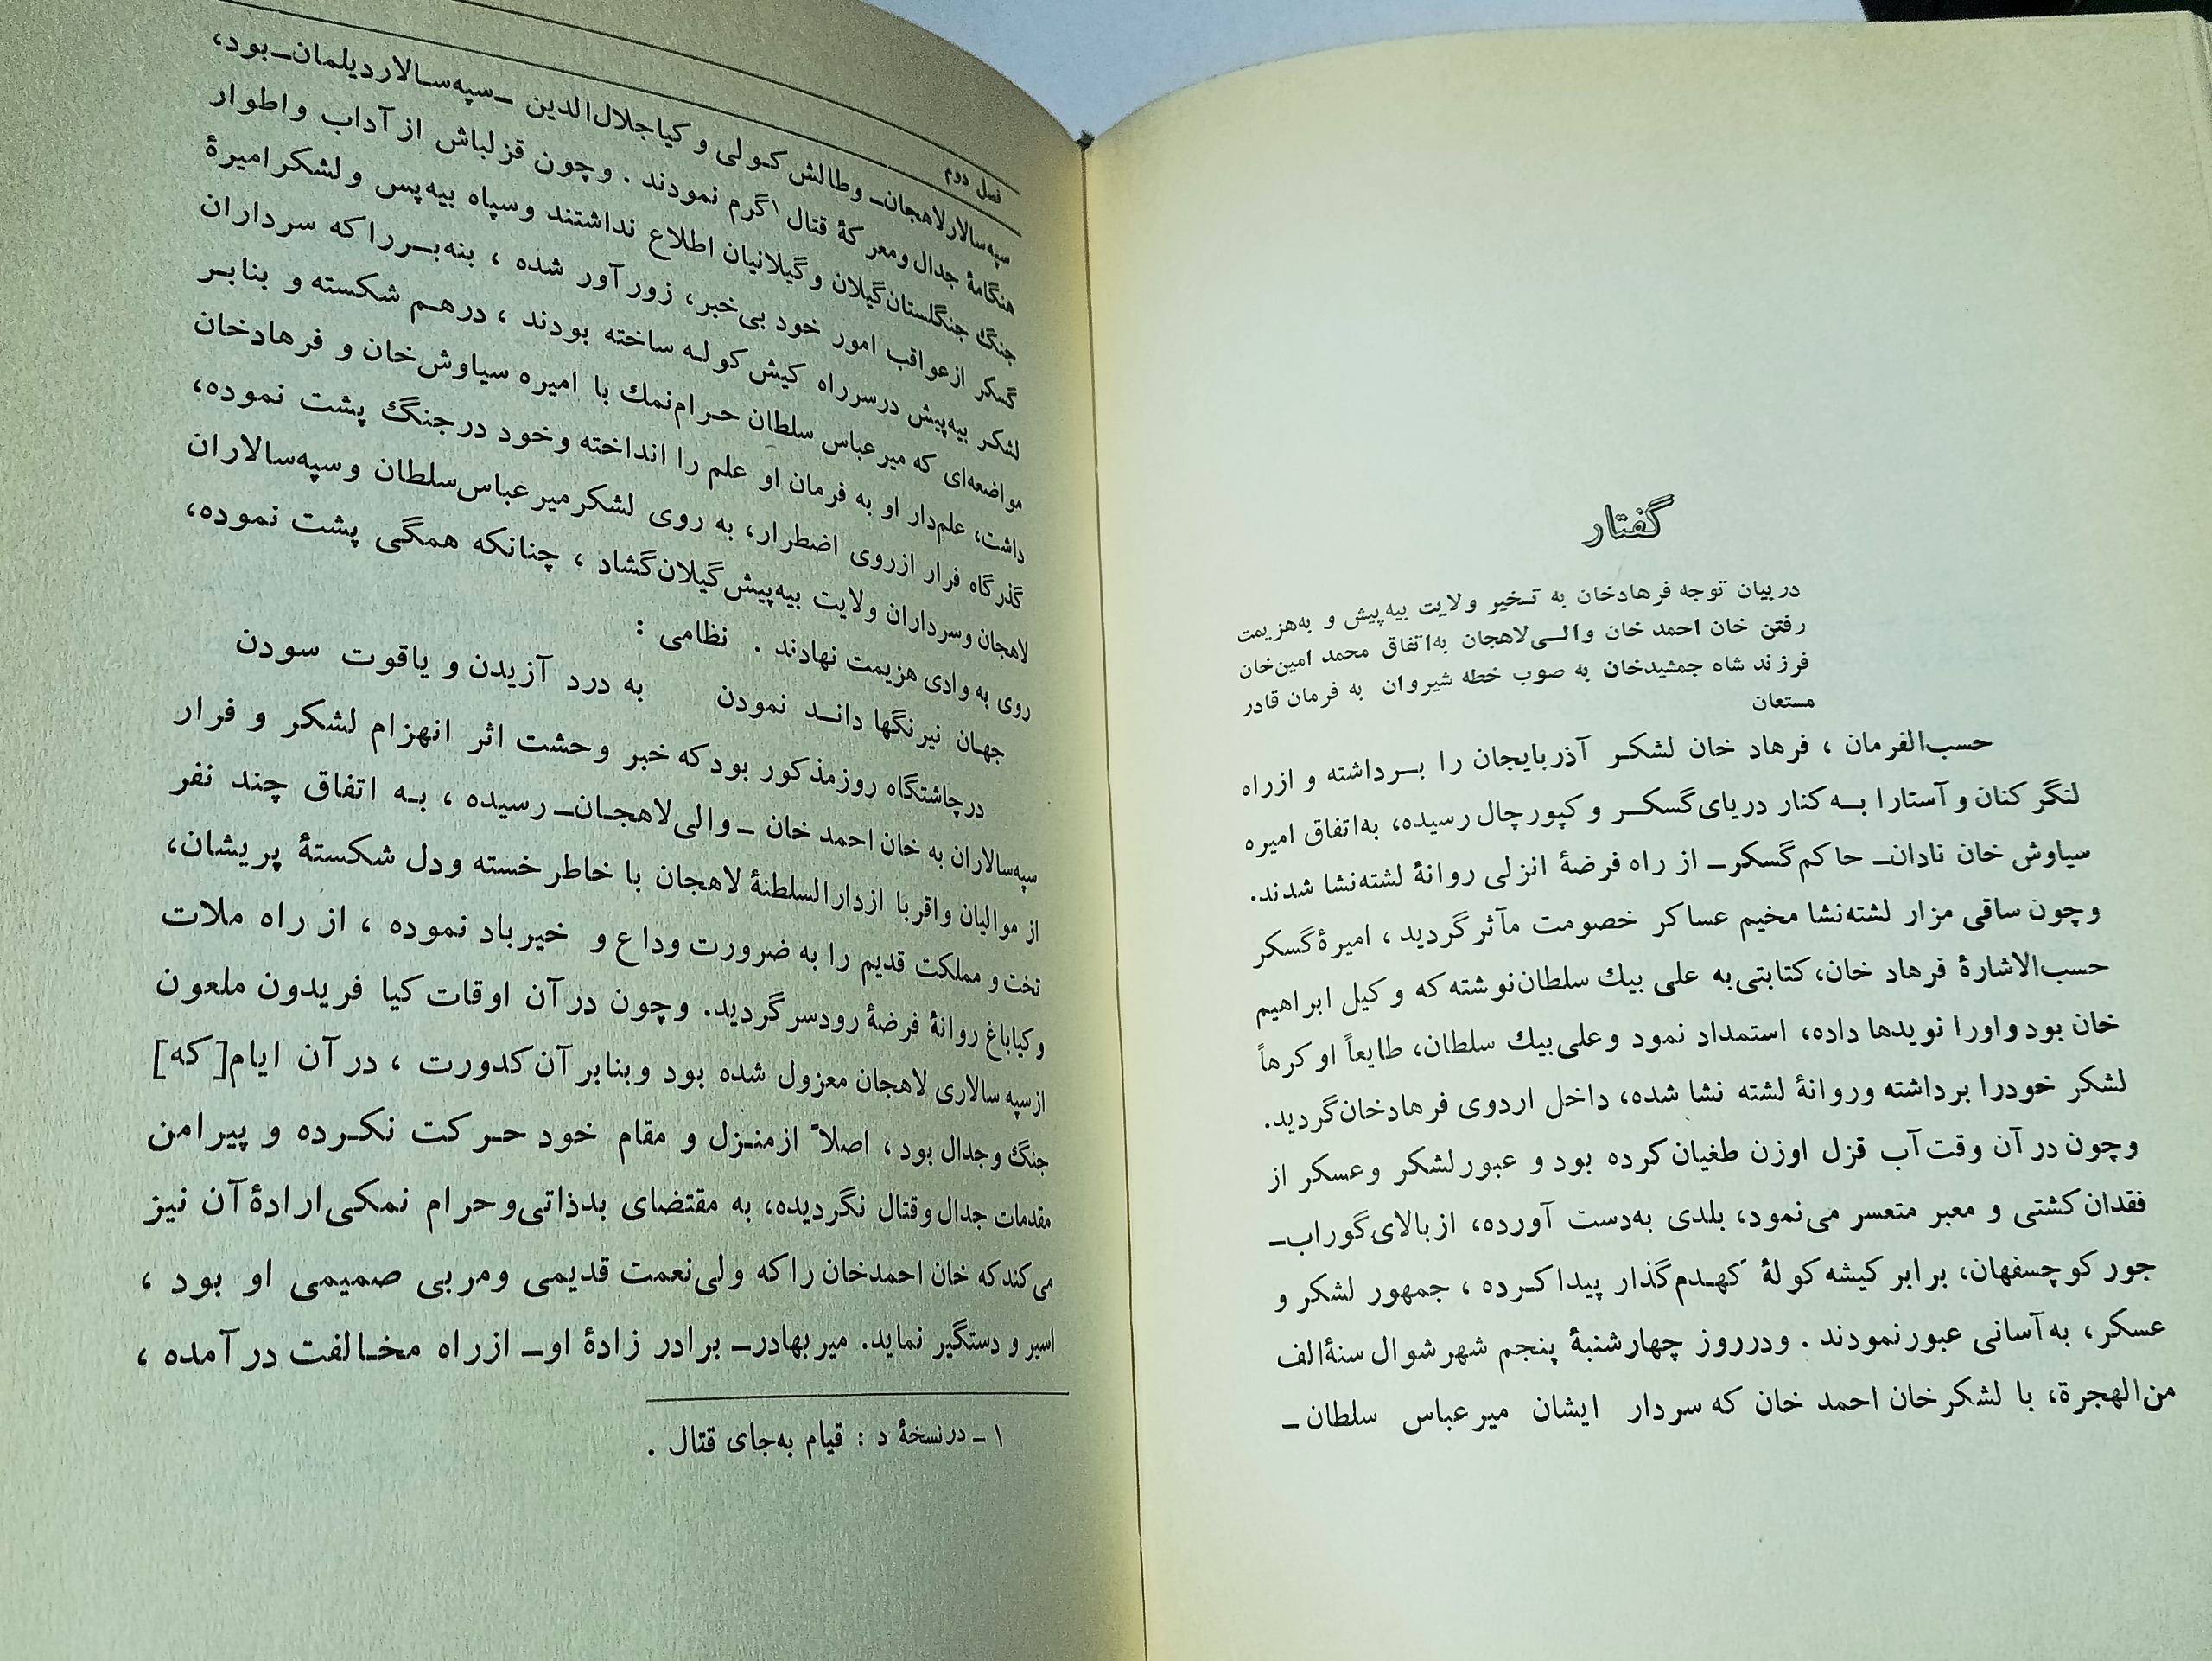 گفتار
در بیان توجه فرهادخان به تسخیر ولایت بیه‌پیش و به‌هزیمت
رفتن خان احمد خان والـی‌لاهجان به‌اتفاق محمد امین‌خان
فرزند شاه جمشیدخان به صوب خطه شیروان به فرمان قادر
مستعان
حسب‌الفرمان ، فرهاد خان لشکر آذربایجان را بـرداشته و ازراه
لنگر کنان و آستارا بـه کنار دریای گسکـر و کپورچال رسیده، به‌اتفاق امیره
سیاوش خان نادان ـ حاکم گسکر ـ از راه فرضهٔ انزلی روانهٔ لشته‌نشا شدند.
وچون ساقی مزار لشته‌نشا مخیم عساکر خصومت مآثر گردید ، امیرهٔ گسکر
حسب‌الاشارهٔ فرهاد خان، کتابتی به علی بیك سلطان نوشته که وکیل ابراهیم
خان بود و اورا نویدها داده، استمداد نمود و علی بیك سلطان، طایعاً او کرهاً
لشکر خودرا برداشته وروانهٔ لشته نشا شده، داخل اردوی فرهادخان گردید.
وچون در آن وقت آب قزل اوزن طغیان کرده بود و عبور لشکر وعسکر از
فقدان کشتی و معبر متعسر می‌نمود، بلدی به‌دست آورده، از بالای گوراب ـ
جور کوچسفهان، برابر کیشه کولهٔ کهـدم گذار پیدا کـرده ، جمهور لشکر و
عسکر، به آسانی عبور نمودند . ودرروز چهارشنبهٔ پنجم شهر شوال سنهٔ الف
من‌الهجرة، با لشکر خان احمد خان که سردار ایشان میرعباس سلطان ـ
فصل دوم
سپه‌سالار لاهجان ـ وطالش کـولی و کیا جلال‌الدین ـ سپه‌سـالار دیلمان ـ بود،
هنگامهٔ جدال ومعرکهٔ قتال۱ گرم نمودند . وچون قزلباش از آداب واطوار
جنگ جنگلستان گیلان و گیلانیان اطلاع نداشتند وسپاه بیه‌پس ولشکر امیرهٔ
گسکر ازعواقب امور خود بی‌خبر، زورآور شده ، بنه‌بـررا که سرداران
لشکر بیه‌پیش درسرراه کیش کولـه ساخته بودند ، درهـم شکسته و بنابـر
مواضعه‌ای که میرعباس سلطان حـرام‌نمك با امیره سیاوش‌خان و فرهادخان
داشت، علم‌دار او به فرمان او علم را انداخته وخود درجنگ پشت نموده،
گذرگاه فرار ازروی اضطرار، به روی لشکر میرعباس‌سلطان وسپه‌سالاران
لاهجان وسرداران ولایت بیه‌پیش گیلان گشاد ، چنانکه همگی پشت نموده،
روی به وادی هزیمت نهادند . نظامی :
جهـان نیرنگها دانـد نمودن به درد آزیدن و یاقوت سودن
درچاشتگاه روزمذکور بودکه خبر وحشت اثر انهزام لشکر و فرار
سپه‌سالاران به خان احمد خان ـ والی‌لاهجـان ـ رسیده ، بـه اتفاق چند نفر
از موالیان واقربا ازدارالسلطنهٔ لاهجان با خاطر خسته ودل شکستهٔ پریشان،
تخت و مملکت قدیم را به ضرورت وداع و خیرباد نموده ، از راه ملات
وکیاباغ روانهٔ فرضهٔ رودسر گردید. وچون درآن اوقات کیا فریدون ملعون
ازسپه سالاری لاهجان معزول شده بود وبنابر آن کدورت ، در آن ایام[که]
جنگ وجدال بود ، اصلاً ازمنـزل و مقام خود حـرکت نکـرده و پیرامن
مقدمات جدال وقتال نگردیده، به مقتضای بدذاتی‌وحرام نمکی‌ارادهٔ آن نیز
می‌کند که خان احمدخان را که ولی‌نعمت قدیمی ومربی صمیمی او بود ،
اسیر و دستگیر نماید. میربهادر ـ برادر زادهٔ او ـ ازراه مخـالفت درآمده ،
۱ ـ درنسخهٔ د : قیام به‌جای قتال .